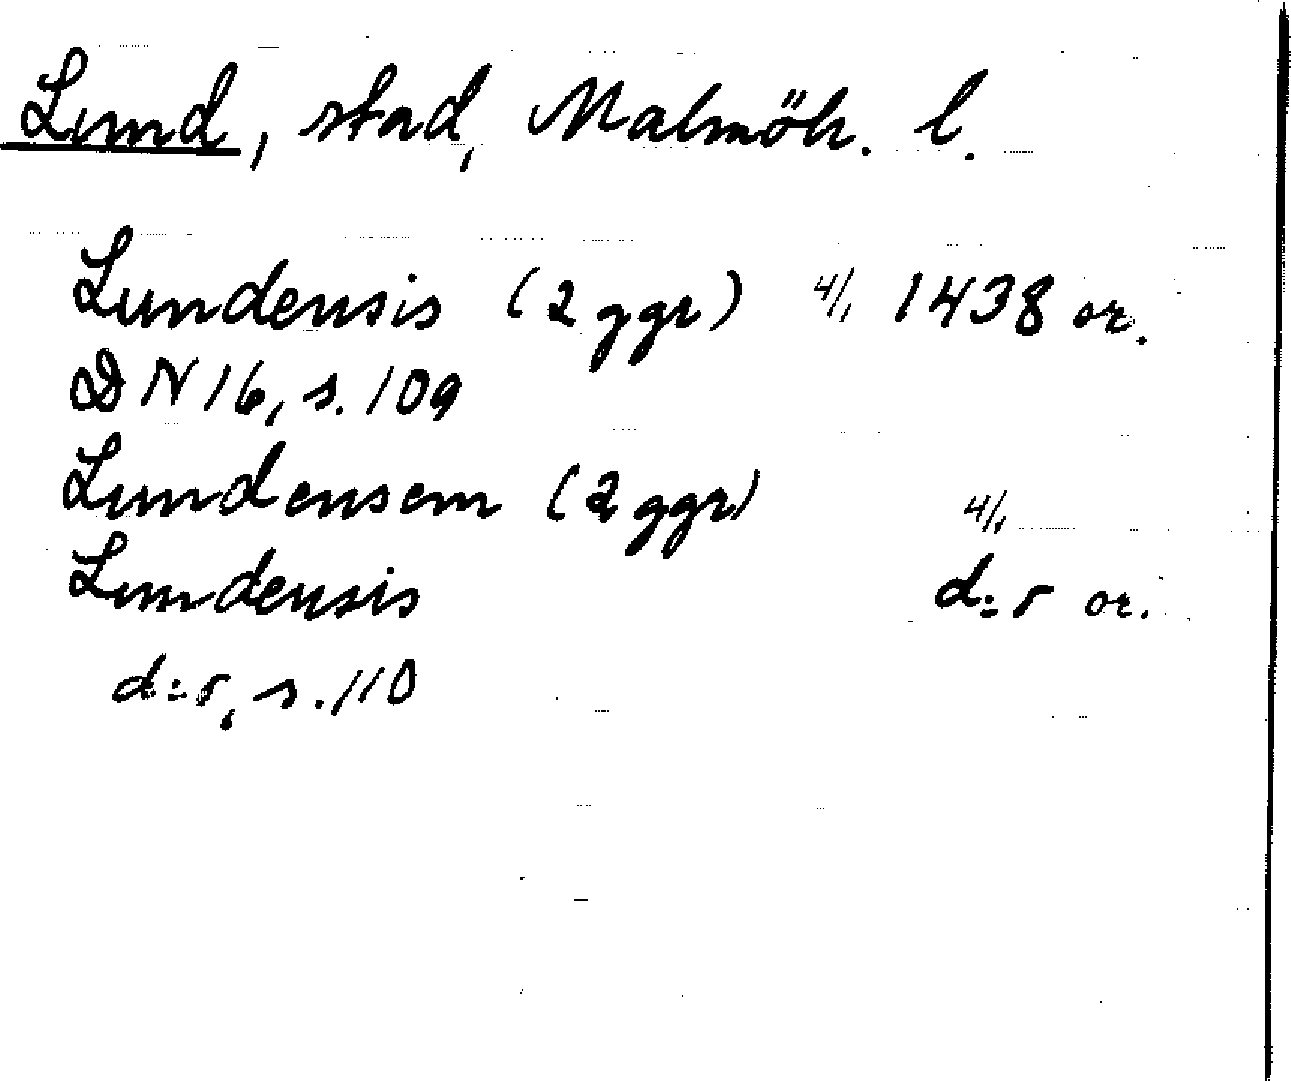 Lund, stad, Malmöh. l.
Lundensis (2 ggr) 4/1 1438 or.
DN 16, s. 109
Lundensem (2 ggr) 4/1
Lundensis d:o or.
d:o, s. 110